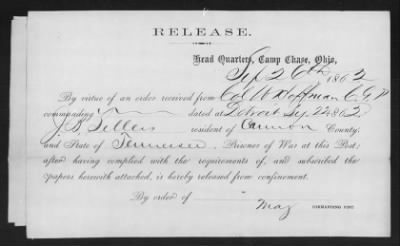 RELEASE.
Head Quarters, Camp Chase, Ohio,
Sep 26th 1862
By virtue of an order received from Col W Hoffman C.G.P.
commanding dated at Detroit Sep 22 1862
J. B. Sellers resident of Cannon County
and State of Tennessee, Prisoner of War at this Post:
after having complied with the requirements of, and subscribed the
papers herewith attached, is hereby released from confinement.
By order of
Maj COMMANDING POST